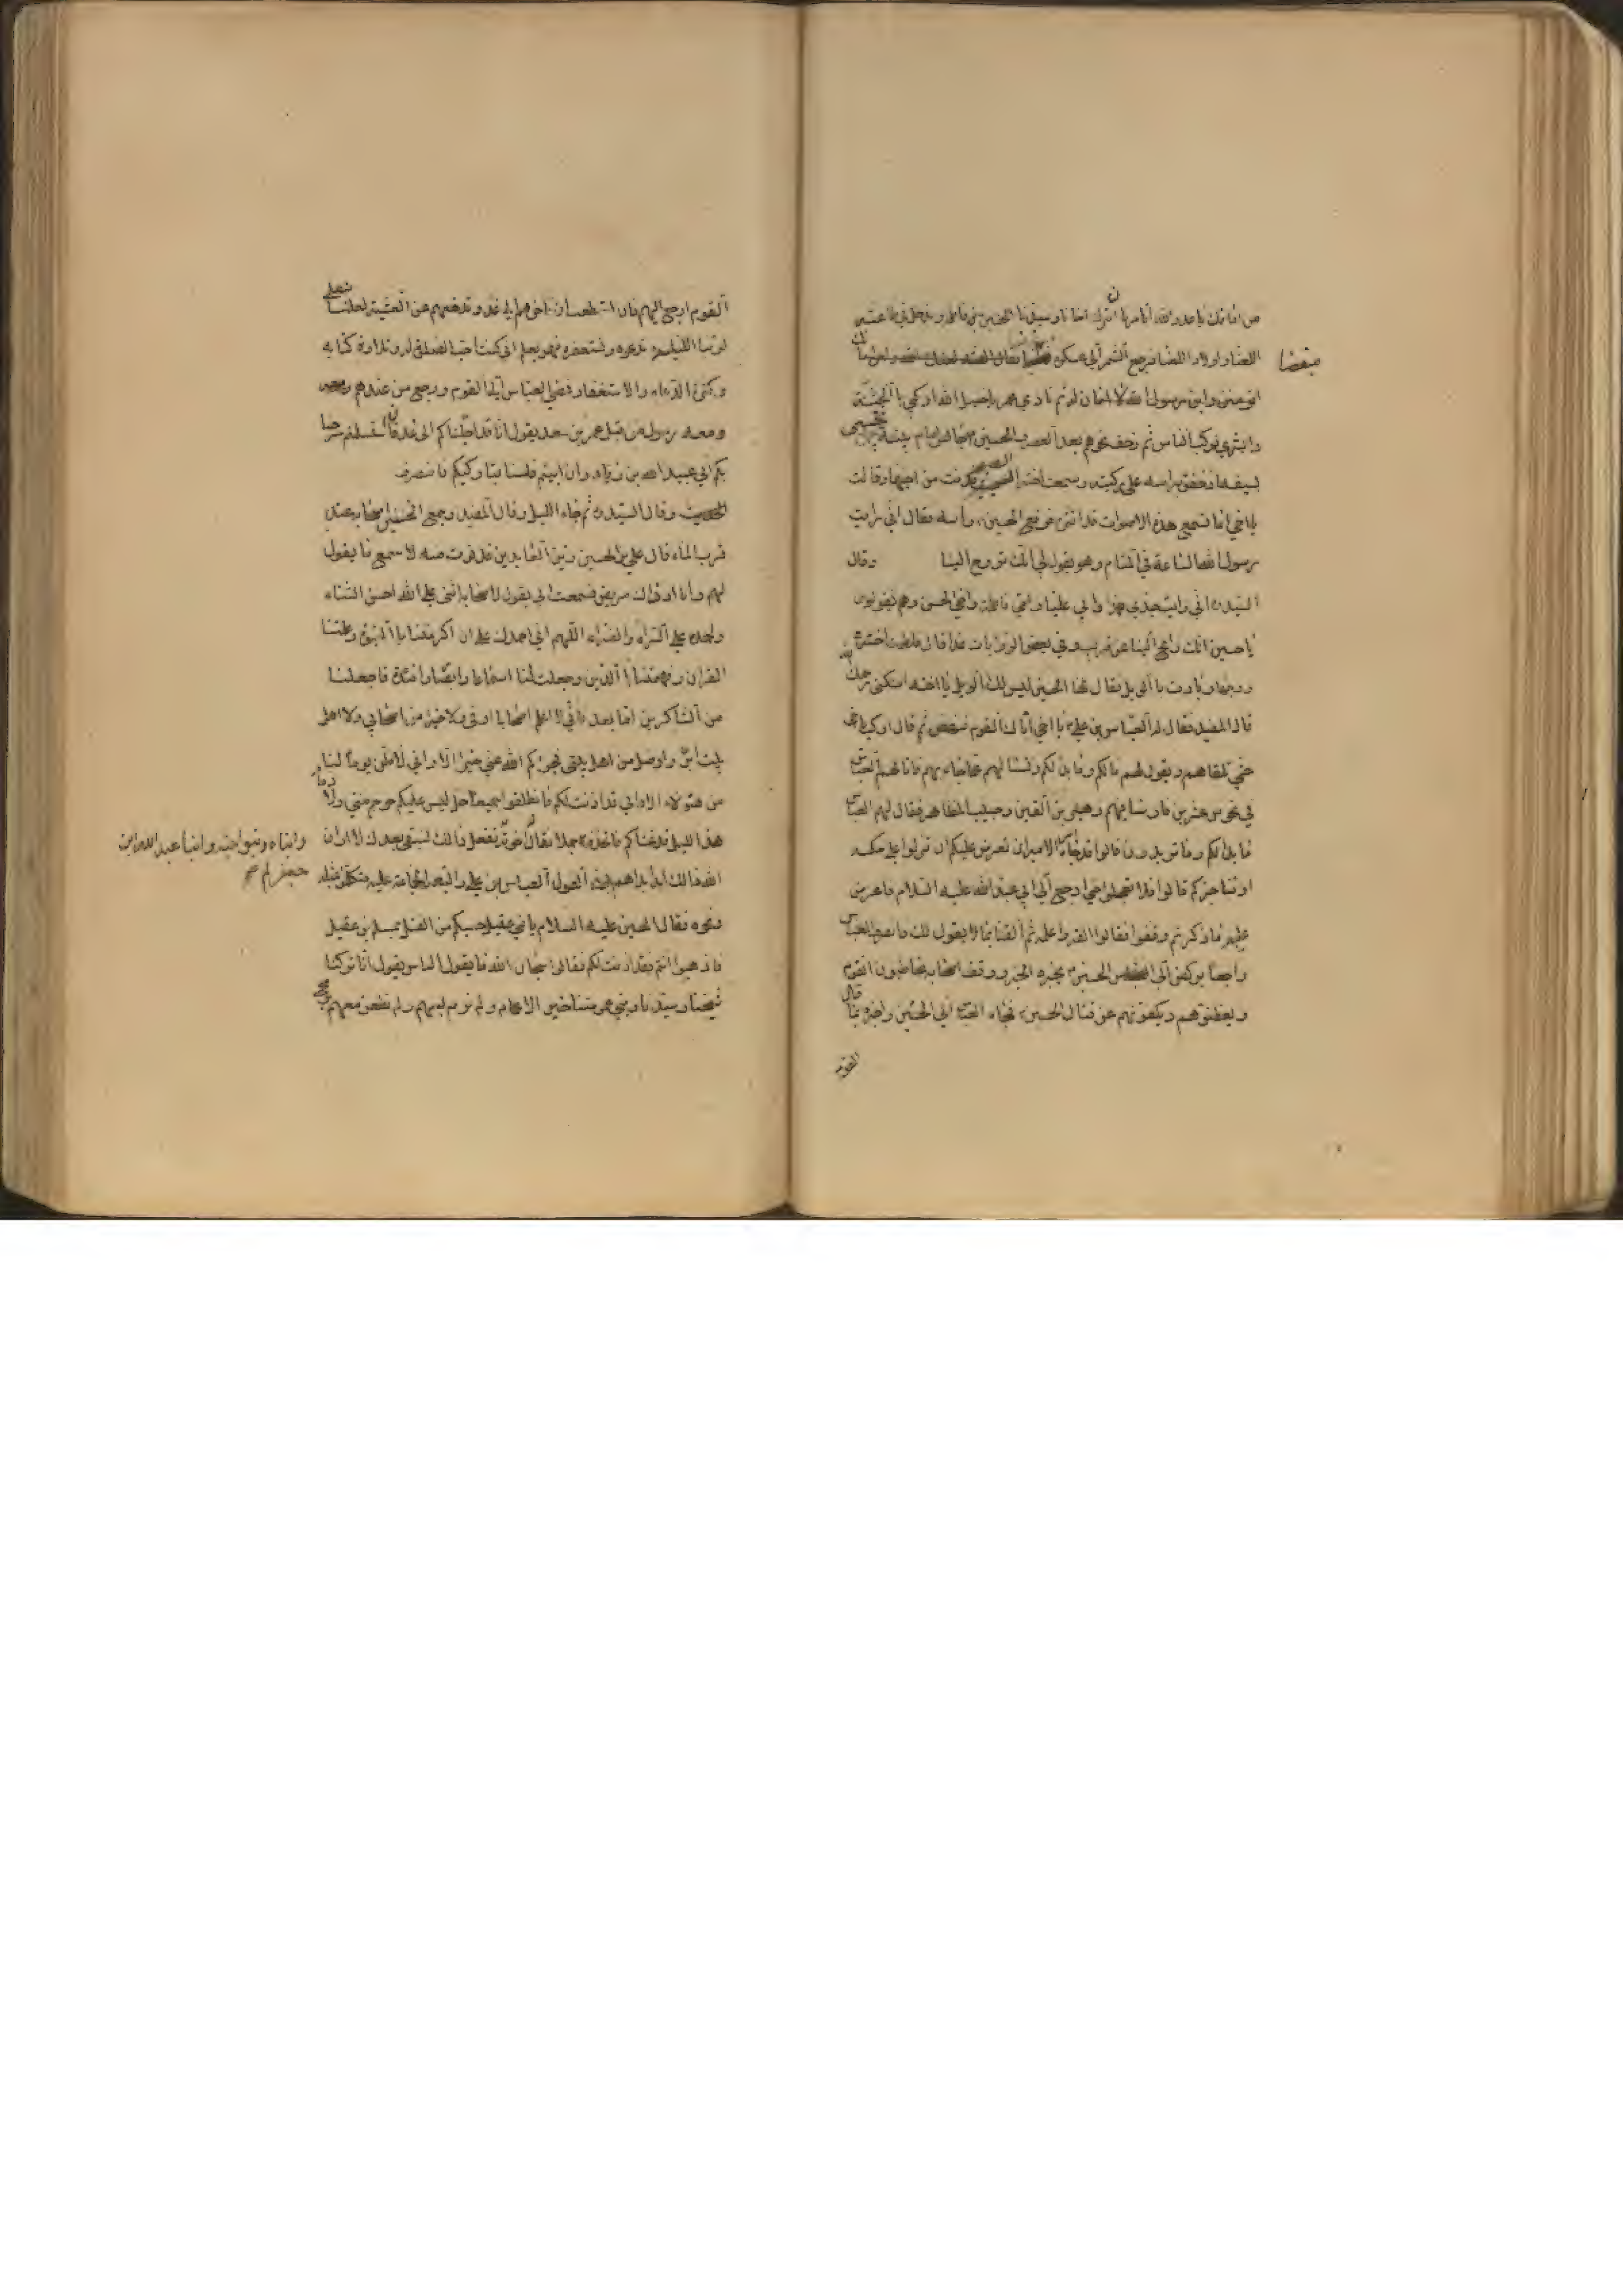 من امانك يا عدو الله أتأمرنا ان نترك اخانا وسيدنا الحسين بن فاطمة وندخل في طاعة
اللعناء واولاد اللعناء فرجع الشمر الى عسكره
مغضبا
اتؤمننا وابن رسول الله لا امان له ثم نادى عمر يا خيل الله اركبي بالجنة
وابشري فركب الناس ثم زحف نحوهم بعد العصر والحسين جالس امام بيته محتبي
بسيفه اذ خفق براسه على ركبتيه وسمعت اخته الصيحة فدنت من اخيها وقالت
يا اخي اما تسمع هذه الاصوات قد اقتربت فرفع الحسين راسه فقال اني رايت
رسول الله الساعة في المنام وهو يقول لي انك تروح الينا وقال
السيد اني رايت جدي محمدا وابي عليا وامي فاطمة واخي الحسن وهم يقولون
يا حسين انك رائح الينا عن قريب وفي بعض الروايات غدا قال فلطمت اخته
وجهها ونادت بالويل فقال لها الحسين ليس لك الويل يا اخته اسكتي رحمك الله
قال المفيد فقال له العباس بن علي يا اخي اتاك القوم فنهض ثم قال اركب يا اخي
حتى تلقاهم وتقول لهم ما لكم وما بدا لكم وتسألهم عما جاء بهم فاتاهم العباس
في نحو من عشرين فارسا منهم زهير بن القين وحبيب بن مظاهر فقال لهم العباس
ما بدا لكم وما تريدون قالوا قد جاء امر الامير ان نعرض عليكم ان تنزلوا على حكمه
او نناجزكم قال فلا تعجلوا حتى ارجع الى ابي عبد الله عليه السلام فاعرض
عليه ما ذكرتم فوقفوا فقالوا القه واعلمه ثم القنا بما يقول لك فانصرف العباس
راجعا يركض الى الحسين يخبره الخبر ووقف اصحابه يخاطبون القوم
ويعظونهم ويكفونهم عن قتال الحسين فجاء العباس الى الحسين واخبره بما قال
القوم
القوم ارجع اليهم فان استطعت ان تؤخرهم الى غد وتدفعهم عن العشية لعلنا نصلي
لربنا الليلة وندعوه ونستغفره فهو يعلم اني كنت احب الصلوة له وتلاوة كتابه
وكثرة الدعاء والاستغفار فمضى العباس الى القوم ورجع من عندهم
ومعه رسول من قبل عمر بن سعد يقول انا قد اجلناكم الى غد فان استسلمتم سرحنا
بكم الى عبيد الله بن زياد وان ابيتم فلسنا بتاركيكم فانصرف
الحديث وقال السيد ثم جاء الليل وقال المفيد وجمع الحسين اصحابه عند
قرب الماء قال علي بن الحسين زين العابدين فدنوت منه لاسمع ما يقول
لهم وانا اذ ذاك مريض فسمعت ابي يقول لاصحابه اثني على الله احسن الثناء
واحمده على السراء والضراء اللهم اني احمدك على ان اكرمتنا بالنبوة وعلمتنا
القران وفهمتنا في الدين وجعلت لنا اسماعا وابصارا وافئدة فاجعلنا
من الشاكرين اما بعد فاني لا اعلم اصحابا اوفى ولا خيرا من اصحابي ولا اهل
بيت ابر واوصل من اهل بيتي فجزاكم الله عني خيرا الا واني لاظن يوما لنا
من هؤلاء الا واني قد اذنت لكم فانطلقوا جميعا في حل ليس عليكم حرج مني ولا ذمام
هذا الليل قد غشيكم فاتخذوه جملا فقال اخوته نفعل ذلك لنبقى بعدك لا ارانا
وابناؤه وبنو اخيه وابنا عبد الله ابن
جعفر لم صح
الله ذلك ابدا بداهم بهذا القول العباس بن علي واتبعه الجماعة عليه فتكلموا بمثله
ونحوه فقال الحسين عليه السلام يا بني عقيل حسبكم من القتل بمسلم بن عقيل
فاذهبوا انتم فقد اذنت لكم فقالوا سبحان الله فما يقول الناس يقول انا تركنا
شيخنا وسيدنا وبني عمومتنا خير الاعمام ولم نرم معهم بسهم ولم نطعن معهم برمح